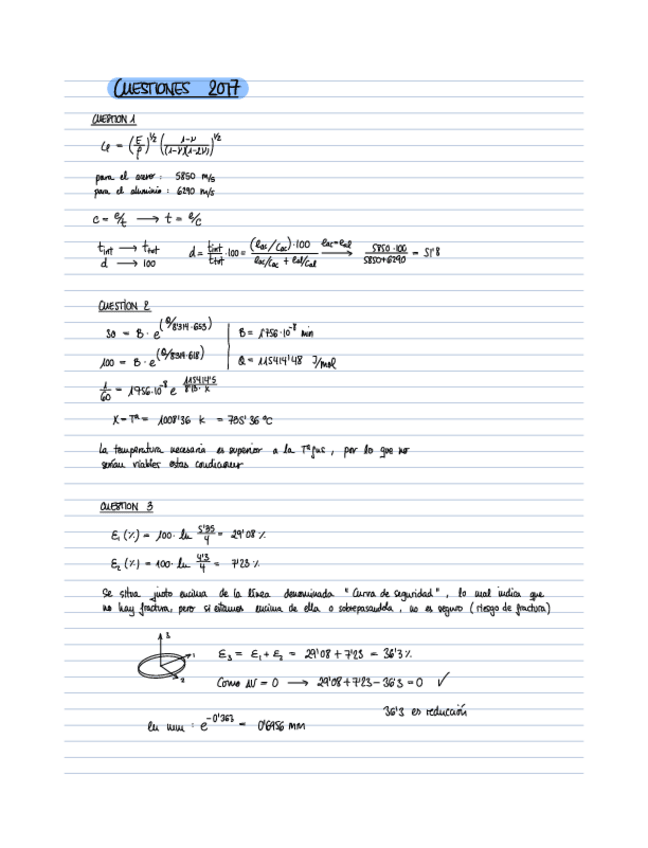 CUESTIONES 2017
CUESTION 1
Cl = (E/ρ)^1/2 (1-ν/(1-ν)(1-2ν))^1/2
para el acero : 5850 m/s
para el aluminio : 6290 m/s
c = e/t → t = e/c
t int → t tot d = t int/t tot · 100 = (l ac/C ac) · 100 / l ac/C ac + l al/C al l ac = l al → 5850 · 100 / 5850+6290 = 51'8
d → 100
CUESTION 2
30 = B · e^(Q/8'314·653) B = 1'756·10^-8 min
100 = B · e^(Q/8'314·618) Q = 115414'48 J/mol
1/60 = 1'756·10^-8 e
X = Tª = 1008'36 K = 735'36 ºC
La temperatura necesaria es superior a la Tª fus, por lo que no
serían viables estas condiciones
CUESTION 3
ε1 (%) = 100 · ln 5'35/4 = 29'08 %
ε2 (%) = 100 · ln 4'3/4 = 7'23 %
Se situa justo encima de la línea denominada "Curva de seguridad", lo cual indica que
no hay fractura, pero si estamos encima de ella o sobrepasandola, no es seguro (riesgo de fractura)
3
1
2
ε3 = ε1 + ε2 = 29'08 + 7'23 = 36'3 %
Como ΔV = 0 → 29'08 + 7'23 - 36'3 = 0 ✓
36'3 es reducción
En mm : e^-0'363 = 0'6956 mm